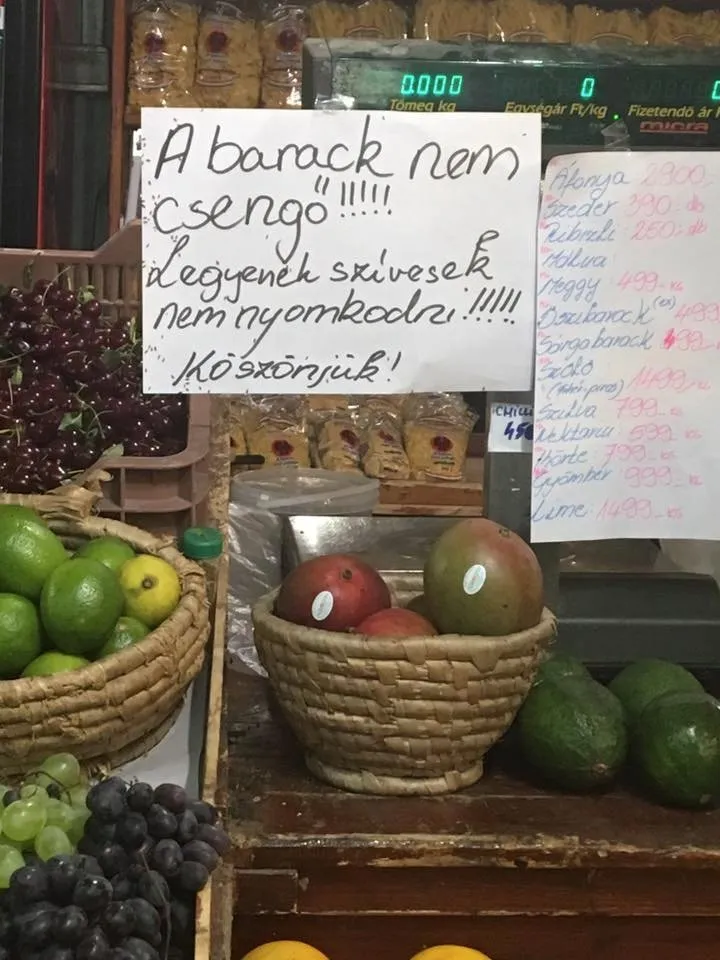 0.000 0
Tömeg kg Egységár Ft/kg Fizetendő ár
micra
A barack nem
csengő!!!!!
Legyenek szívesek
nem nyomkodni!!!!!
Köszönjük!
Áfonya 2900,-
Szeder 390,- db
Ribizli 250,- db
Málna
Meggy 499,- kg
Őszibarack 499
Sárgabarack 499,-
Szőlő
(fehér-piros) 1499,- kg
Szilva 799,- kg
Nektarin 599,- kg
Körte 799,- kg
Gyömbér 999,- kg
Lime 1499,- kg
CHILI